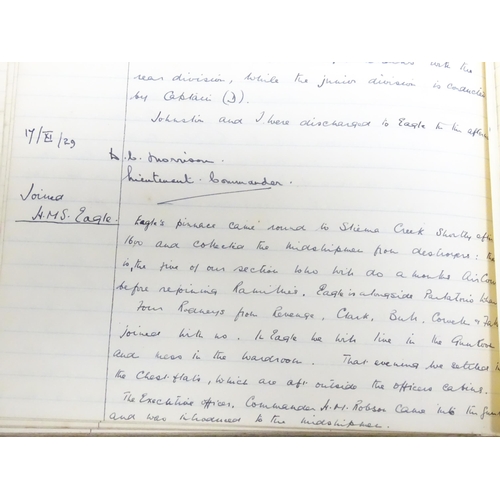 the
rear division, while the junior division is conducted
by Captain (D).
Johnston and I were discharged to Eagle in the
17/XI/29
D. C. Morrison.
Lieutenant. Commander.
Joined
H.M.S. Eagle.
Eagle's pinnace came round to Sliema Creek shortly after
1600 and collected the midshipmen from destroyers:
is, the five of our section who will do a months Air Course
before rejoining Ramillies. Eagle is alongside Parlatorio
Four from Revenge, Clark,
joined with us. In Eagle we will live in the Gunroom
and mess in the wardroom. That evening we
the Chest flats, which are aft outside the officers cabins.
The Executive officer, Commander H.M. Robson came into the
and was introduced to the midshipmen.